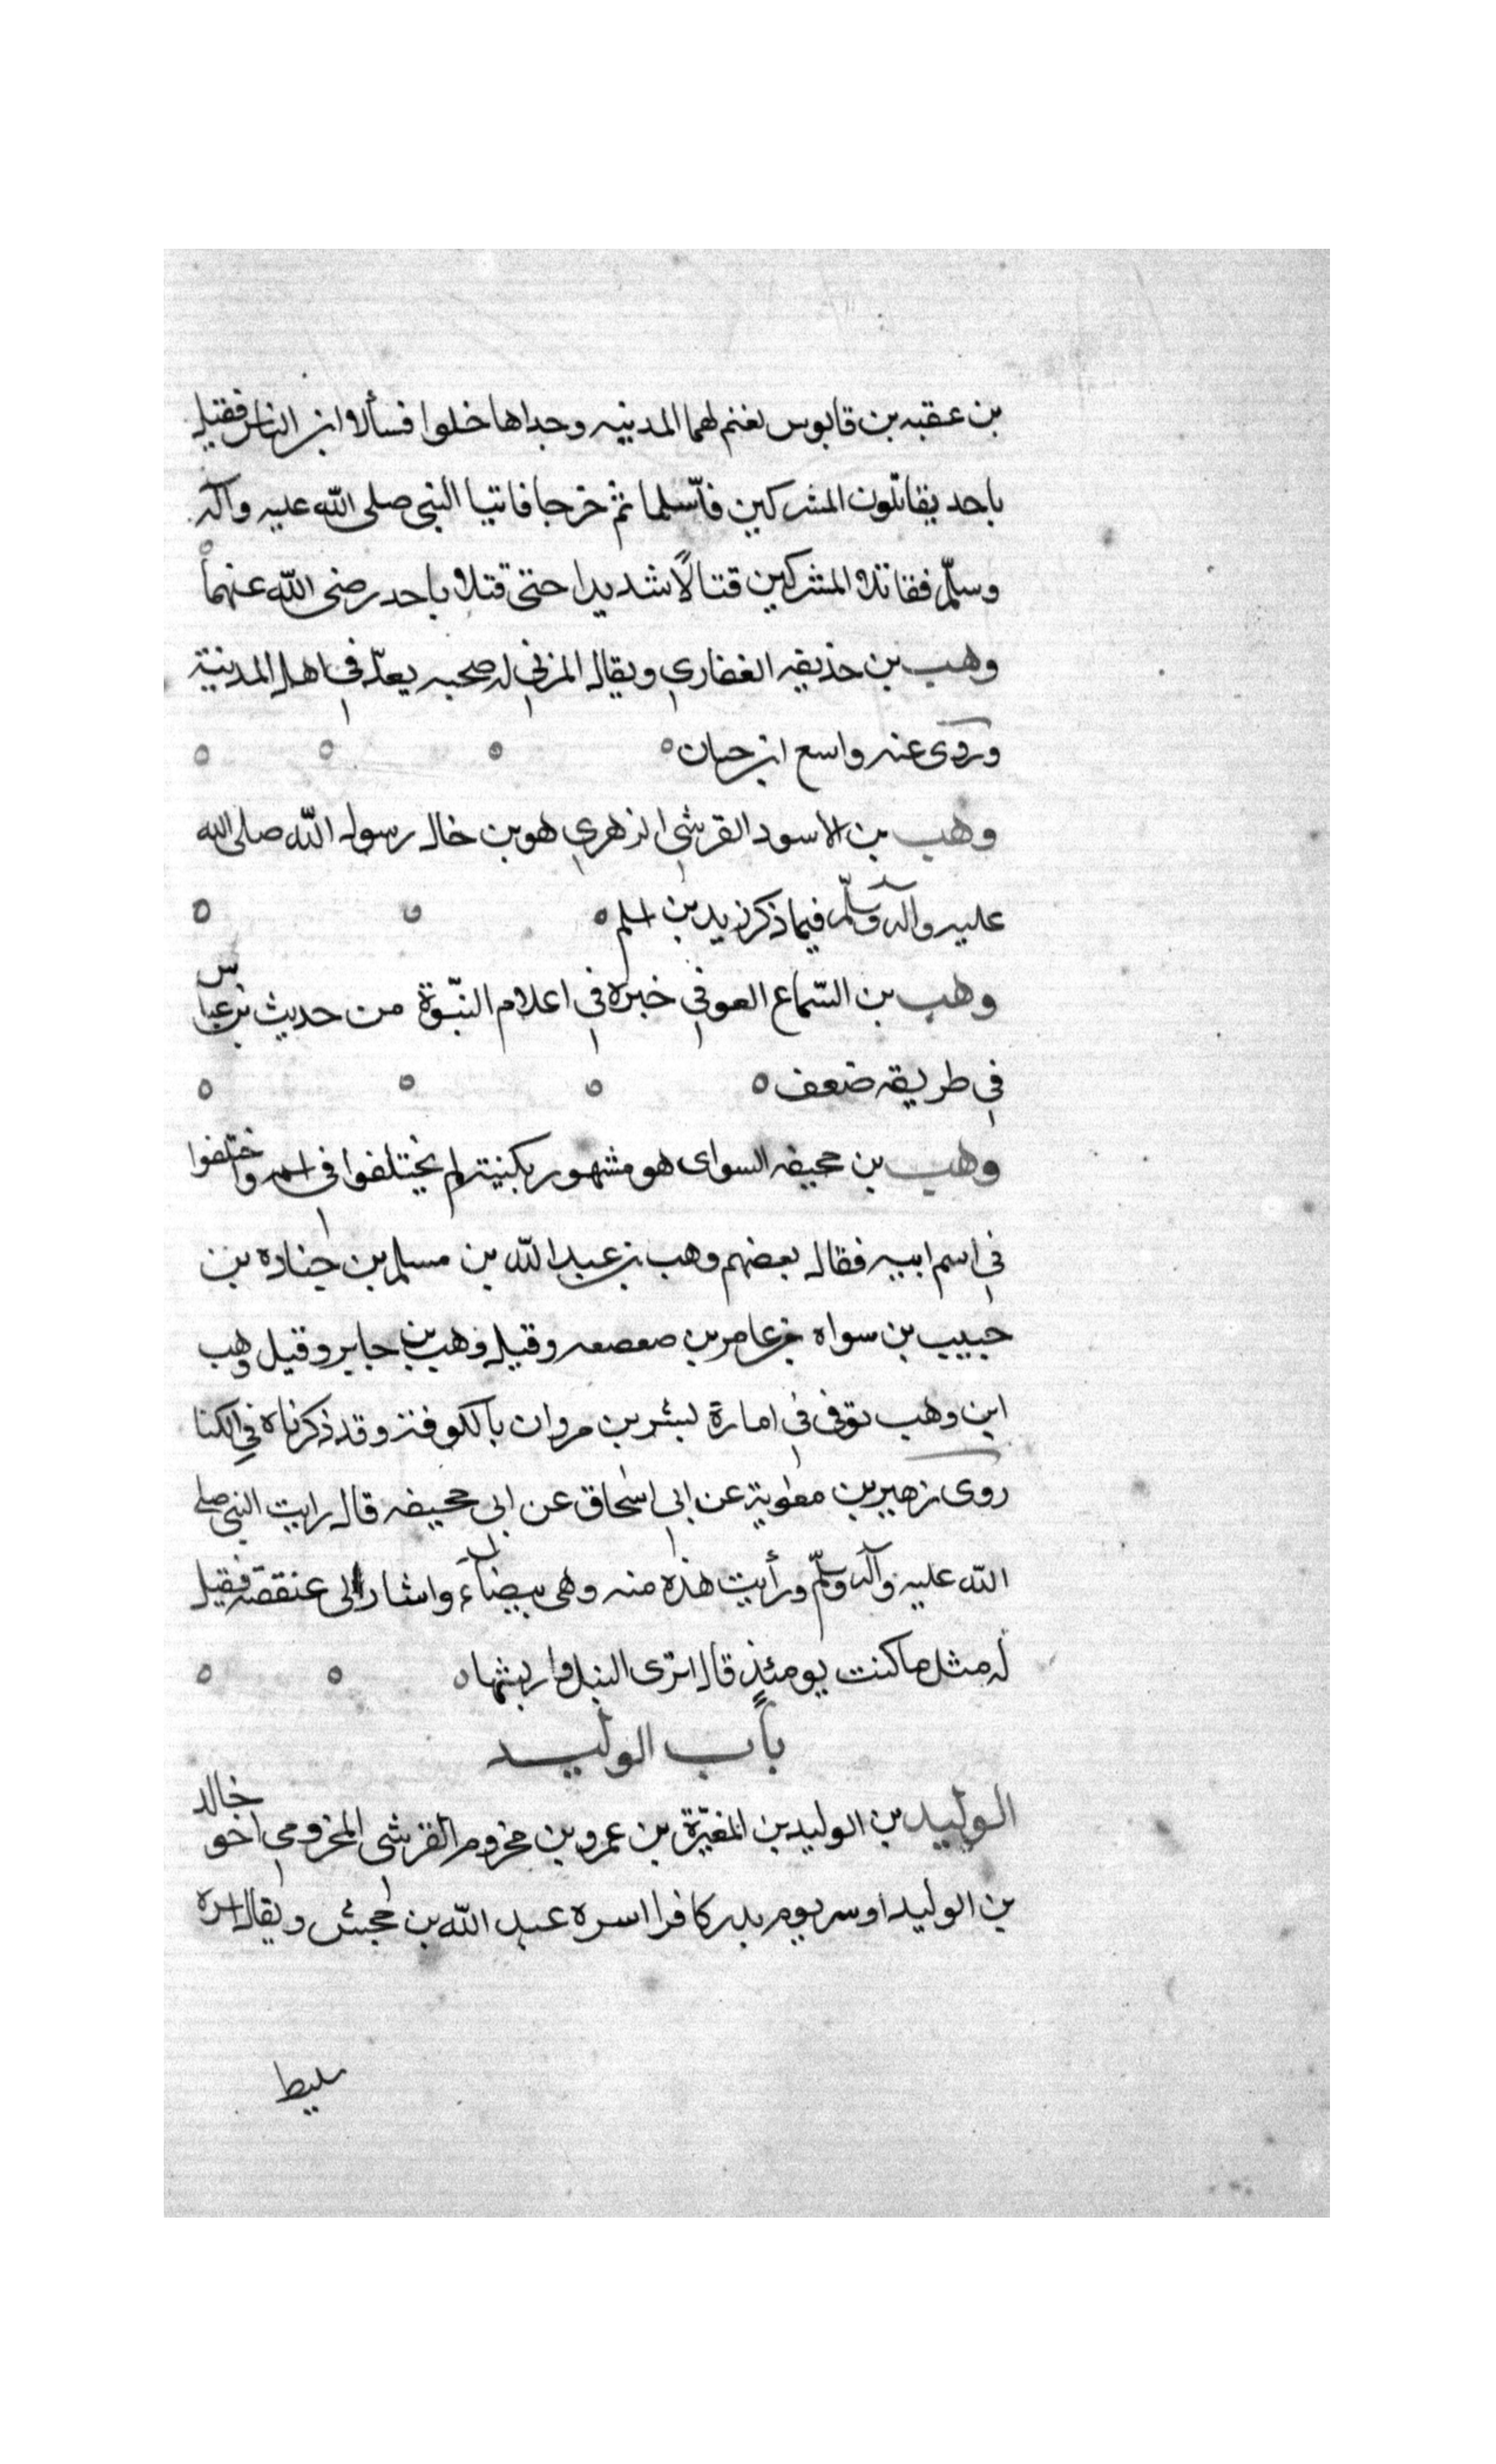 بن عقبه بن قابوس بغنم لهما المدينه وجداها خلوا فسألا اين الناس فقيل
باحد يقاتلون المشركين فأسلما ثم خرجا فاتيا النبى صلى الله عليه وآله
وسلّم فقاتلا المشركين قتالاً شديدا حتى قتلا باحد رضى الله عنهما
وهب بن حذيفه الغفاري ويقال المزني له صحبه يعدّ في اهل المدينة
وروى عنه واسع ابن حبان
وهب بن الاسود القرشي الزهري هو بن خال رسول الله صلى الله
عليه وآله وسلّم فيما ذكر زيد بن اسلم
وهب بن السّماع العوفي خبره في اعلام النبّوة من حديث بن عباس
في طريقه ضعف
وهب بن جحيفه السواى هو مشهور بكنيته لم يختلفوا في اسمه واختلفوا
في اسم ابيه فقال بعضهم وهب بن عبد الله بن مسلم بن جناده بن
حبيب بن سواه بن عامر بن صعصعه وقيل وهب بن جابر وقيل وهب
ابن وهب توفى في امارة لبشر بن مروان بالكوفة وقد ذكرناه في الكنا
روى زهير بن معاوية عن ابي اسحاق عن ابى جحيفه قال رايت النبى صلى
الله عليه وآله وسلّم ورأيت هذه منه وهى بيضآء واشار الى عنفقته فقيل
له مثل ما كنت يومئذٍ قال ابرى النبل واريشها
باب الوليد
الوليد بن الوليد بن المغيرة بن عمرو بن مخزوم القرشى المخزومي اخو خالد
بن الوليد اوسر يوم بدر كافرا اسره عبد الله بن جحش ويقال اسره
سليط